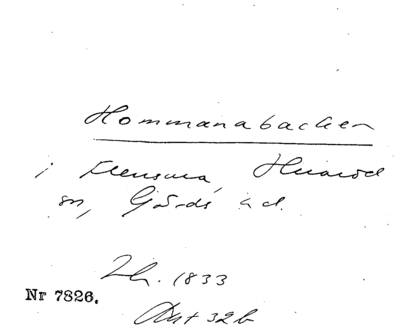 Hommanabacken
i Huaröd
sn, Gärds hd.
1833
Nr 7826.
Akt 32 b